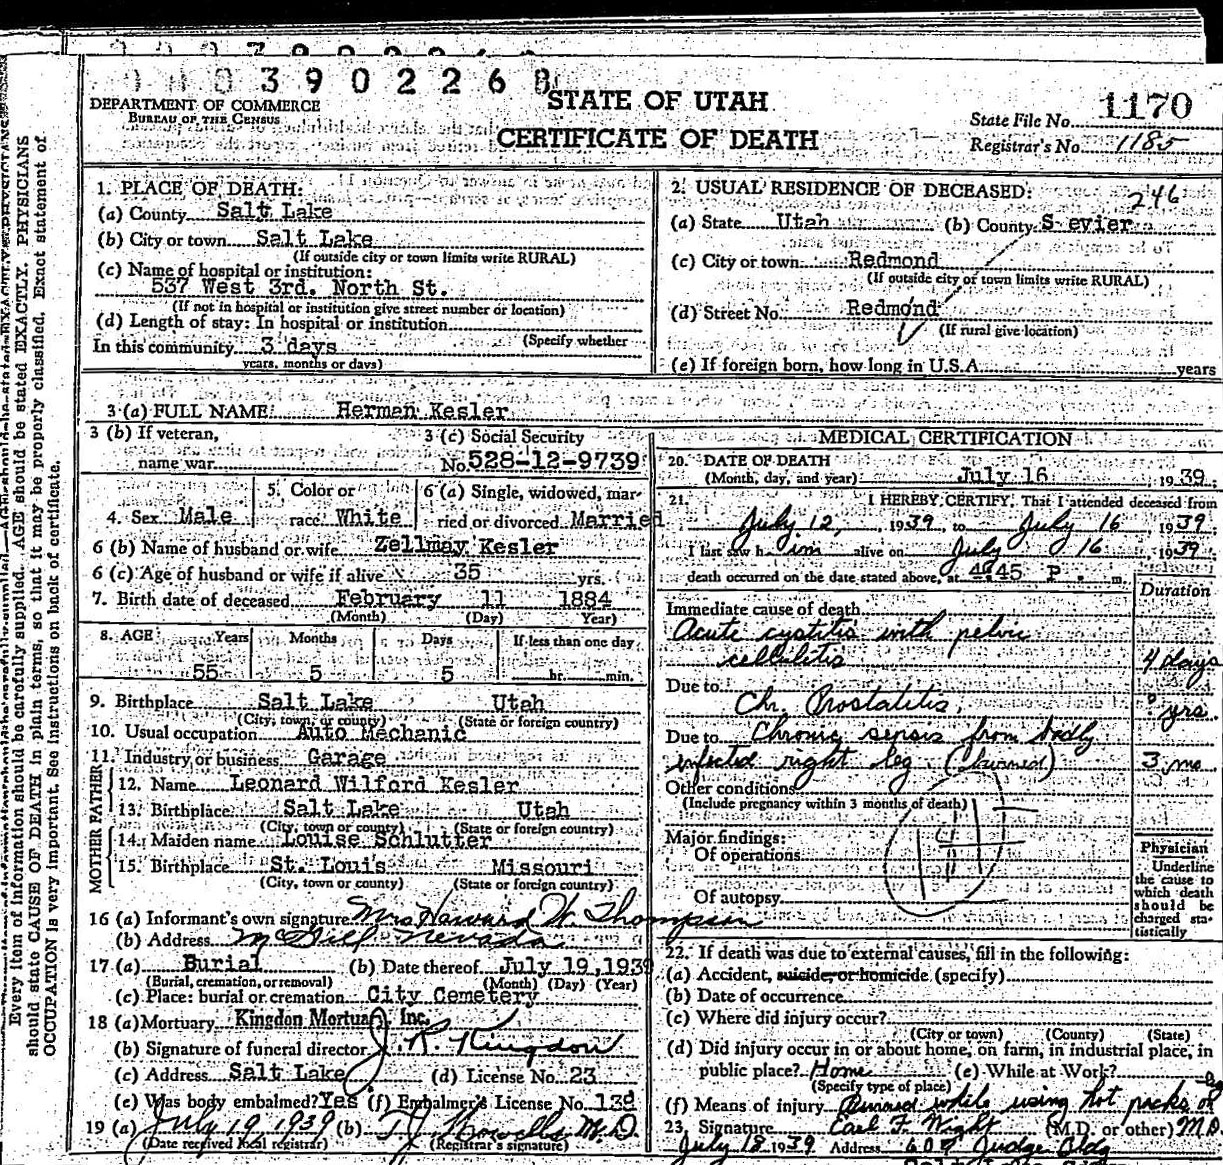 0 3 9 0 2 2 6 8
DEPARTMENT OF COMMERCE
BUREAU OF THE CENSUS
STATE OF UTAH
CERTIFICATE OF DEATH
State File No. 1170
Registrar's No. 1185
Every item of information should be carefully supplied. AGE should be stated EXACTLY. PHYSICIANS
should state CAUSE OF DEATH in plain terms, so that it may be properly classified. Exact statement of
OCCUPATION is very important. See instructions on back of certificate.
1. PLACE OF DEATH:
(a) County Salt Lake
(b) City or town Salt Lake
(If outside city or town limits write RURAL)
(c) Name of hospital or institution:
537 West 3rd. North St.
(If not in hospital or institution give street number or location)
(d) Length of stay: In hospital or institution
(Specify whether
In this community 3 days
years, months or days)
2. USUAL RESIDENCE OF DECEASED:
246
(a) State Utah (b) County S evier
(c) City or town Redmond
(If outside city or town limits write RURAL)
(d) Street No. Redmond
(If rural give location)
(e) If foreign born, how long in U.S.A. years
3 (a) FULL NAME: Herman Kesler
3 (b) If veteran,
name war
3 (c) Social Security
No. 528-12-9739
4. Sex Male
5. Color or
race White
6 (a) Single, widowed, mar-
ried or divorced Married
6 (b) Name of husband or wife Zellmay Kesler
6 (c) Age of husband or wife if alive 35 yrs.
7. Birth date of deceased February 11 1884
(Month) (Day) Year)
8. AGE Years Months Days If less than one day
55 5 5 hr. min.
9. Birthplace Salt Lake Utah
(City, town, or county) (State or foreign country)
10. Usual occupation Auto Mechanic
11. Industry or business Garage
FATHER
12. Name Leonard Wilford Kesler
13. Birthplace Salt Lake Utah
(City, town or county) (State or foreign country)
MOTHER
14. Maiden name Louise Schlutter
15. Birthplace St. Louis Missouri
(City, town or county) (State or foreign country)
16 (a) Informant's own signature Mrs Howard W. Thompson
(b) Address McGill Nevada
17 (a) Burial (b) Date thereof July 19, 1939
(Burial, cremation, or removal) (Month) (Day) (Year)
(c) Place: burial or cremation City Cemetery
18 (a) Mortuary Kingdon Mortuary Inc.
(b) Signature of funeral director J. R. Kingdon
(c) Address Salt Lake (d) License No. 23
(e) Was body embalmed? Yes (f) Embalmer's License No. 139
19 (a) July 19 1939 (b) T. J. Howells M.D.
(Date received local registrar) (Registrar's signature)
MEDICAL CERTIFICATION
20. DATE OF DEATH
(Month, day, and year) July 16 1939
21. I HEREBY CERTIFY, That I attended deceased from
July 12, 1939 to July 16 1939
I last saw h im alive on July 16 1939
death occurred on the date stated above, at 4:45 P. m.
Duration
Immediate cause of death
Acute cystitis with pelvic
cellulitis 4 days
Due to Chr. Prostatitis, yrs.
Due to Chronic sepsis from badly
infected right leg (burned) 3 mo
Other conditions
(Include pregnancy within 3 months of death)
Major findings:
Of operations
Of autopsy
Physician
Underline
the cause to
which death
should be
charged sta-
tistically
22. If death was due to external causes, fill in the following:
(a) Accident, suicide, or homicide (specify)
(b) Date of occurrence
(c) Where did injury occur?
(City or town) (County) (State)
(d) Did injury occur in or about home, on farm, in industrial place, in
public place? Home (e) While at Work?
(Specify type of place)
(f) Means of injury Burned while using hot packs on leg
23. Signature Earl F. Wight (M.D. or other) M.D.
July 18 1939 Address 607 Judge Bldg